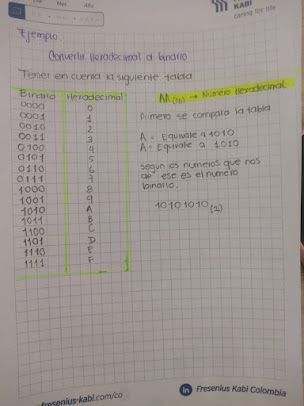 Día Mes Año
KABI
caring for life
Ejemplo.
Convertir Hexadecimal a binario
Tener en cuenta la siguiente tabla
Binario Hexadecimal
0000 0
0001 1
0010 2
0011 3
0100 4
0101 5
0110 6
0111 7
1000 8
1001 9
1010 A
1011 B
1100 C
1101 D
1110 E
1111 F
→ Número Hexadecimal
Primero se compara la tabla
A = Equivale a 1010
A = Equivale a 1010
Según los numeros que nos
de ese es el numero
binario.
10101010 (2)
fresenius-kabi.com/co
in Fresenius Kabi Colombia